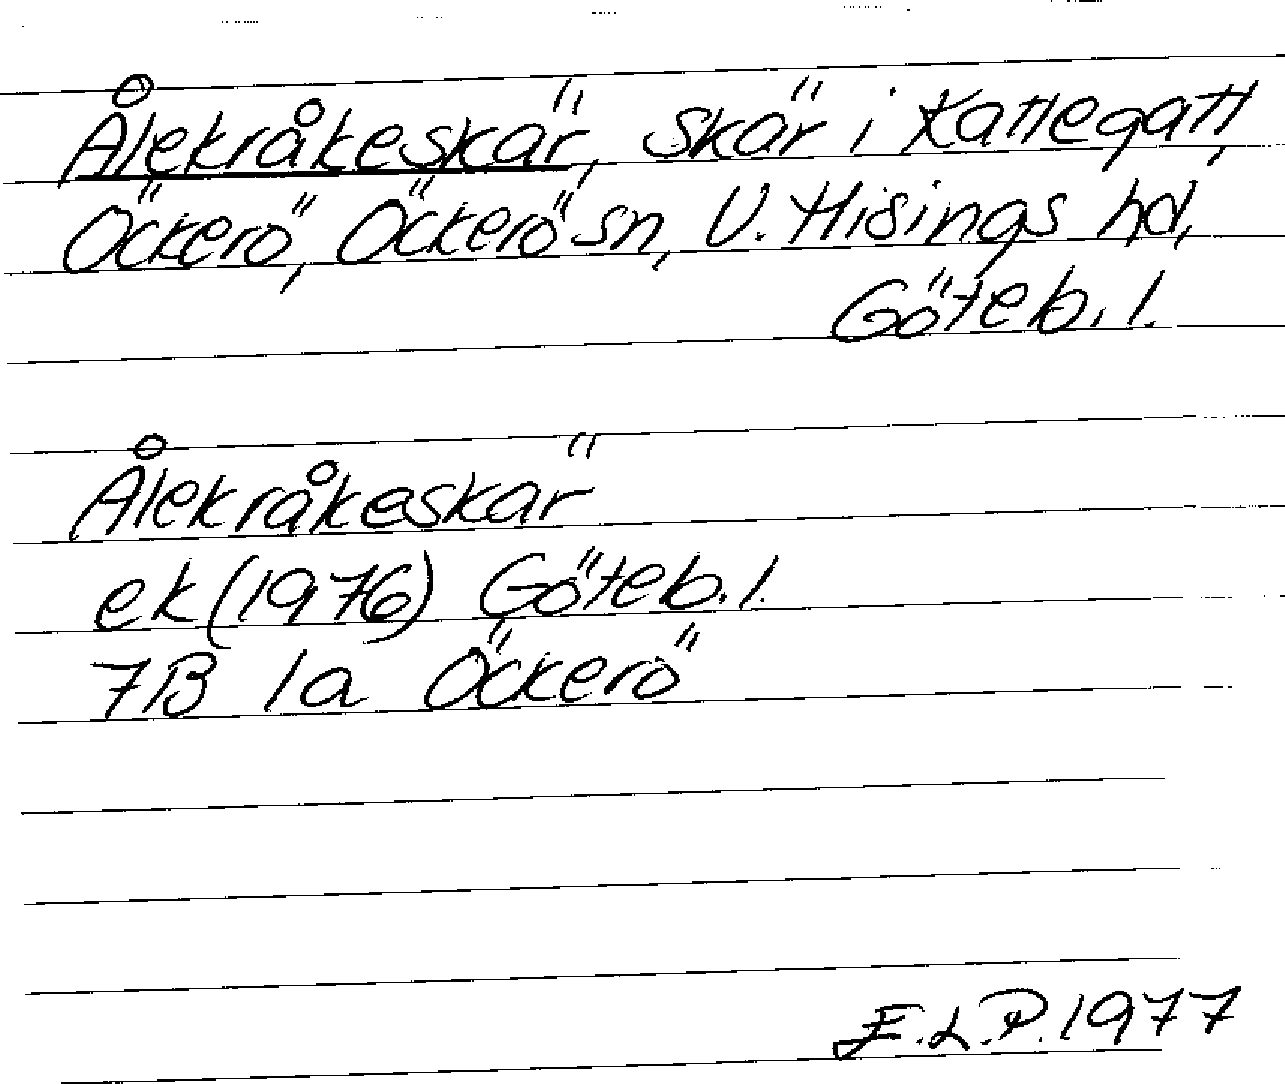 Ålekråkeskär, skär i Kattegatt,
Öckerö, Öckerö sn, V. Hisings hd,
Göteb. l.
Ålekråkeskär
ek (1976) Göteb. l.
7B 1a Öckerö
E.L.P. 1977